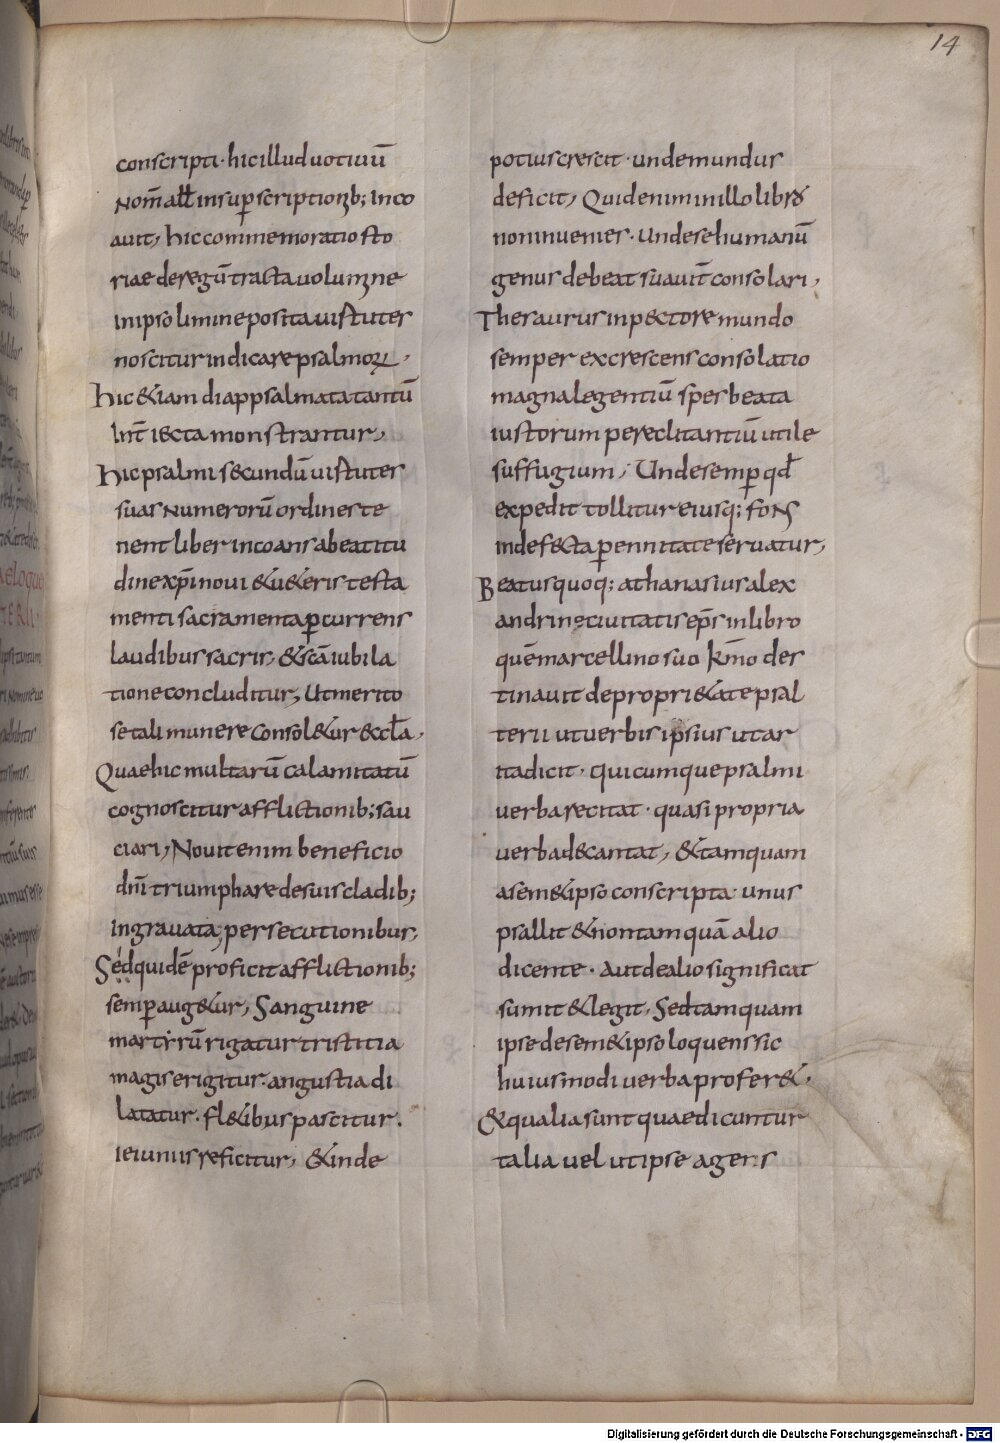 14
conscripti· hic illud uotiuū
Nom̄ all̄ in suꝑscriptionib; Inco
auit, hic commemoratio sto
riae de regū tracta uolumine
in ipso limine posita uirtuter
noscitur indicare psalmorū,
hic &iam diappsalmata tantū
Int̄ iecta monstrantur,
Hic psalmi secundū uirtuter
suas Numerorū ordines te
nent liber incoans a beatitu
dine xp̄i noui & u&eris testa
menti sacramenta ꝑcurrens
laudibus sacris, & scā iubila
tione concluditur, Ut merito
se tali munere Consol&ur & eccl̄a,
Quae hic multarū Calamitatū
cognoscitur afflictionib; sau
ciari, Nouit enim beneficio
dn̄i triumphare de suis cladib;
ingrauata, persecutionibus,
Sed quidē proficit afflictionib;
semꝑ aug&ur, Sanguine
martyrū rigatur tristitia
magis erigitur· angustia di
latatur· fl&ibus pascitur·
ieiuniis reficitur, & inde
potius crescit· unde mundus
deficit, Quid enim in illo libro
non inuenies· unde se humanū
genus debeat suauit̄ consolari,
Thesaurus in pectore mundo
semper excrescens consolatio
magna legentiū spes beata
iustorum pereclitantiū utile
suffugium, Unde semꝑ qđ
expedit tollitur eiusq; foNS
indefecta ꝑennitate seruatur,
Beatus quoq; athanasius alex
andrinę ciuitatis ep̄s in libro
quē marcellino suo km̄o des
tinauit de propri&ate psal
terii ut uerbis ipsius utar
ita dicit· quicumque psalmi
uerba recitat· quasi propria
uerba decantat, & tamquam
a sem&ipso conscripta· unus
psallit & non tamquā alio
dicente· Aut de alio significat
sumit & legit, Sed tamquam
ipse de sem&ipso loquens sic
huiusmodi uerba profer&,
& qualia sunt quae dicuntur
talia uel ut ipse agens
Digitalisierung gefördert durch die Deutsche Forschungsgemeinschaft - DFG